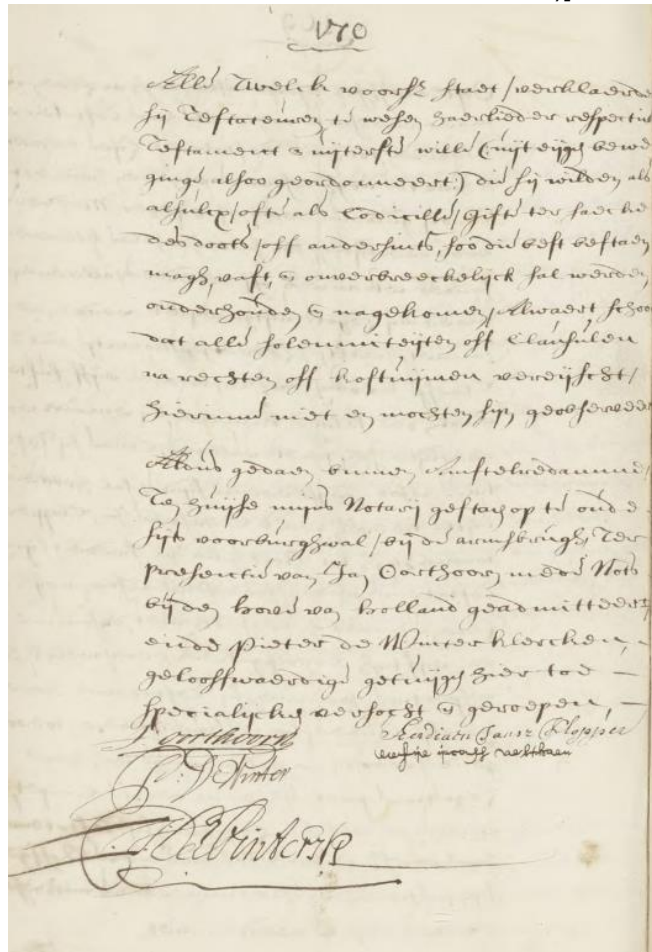 170
Alle twelck voorsz staet / verclaerde
sij Testateuren te wesen haerlieder respective
Testament & uijterste wille (uijt eijgen bewe
ginge alsoo geordonneert:) die sij wilden als
alsulcx / ofte als Codicille / gifte ter saecke
des doots / off andersints, soo die best bestaen
magh, vast, & onverbreeckelijck sal werden
onderhouden & nagekomen / Alwaert schoon
dat alle solemniteijten off Clausulen
na rechten off costuijmen vereijscht /
hierinne niet en mochten sijn geobserveer
Aldus gedaen binnen Amstelredamme /
Ten huijse mijns Notarij gestaen op te oude
sijts voorburghwal / bij de armsbrugh, Ter
presentie van Jan Oorthoorn mede Nots
bij den hove van Holland geadmitteert
ende Pieter de Winter klercken,
geloofwaerdige getuijgen hier toe
specialijcken versocht & geroepen,
J oorthoorn
Aerdiaen Jansz Klopper
P: D Winter